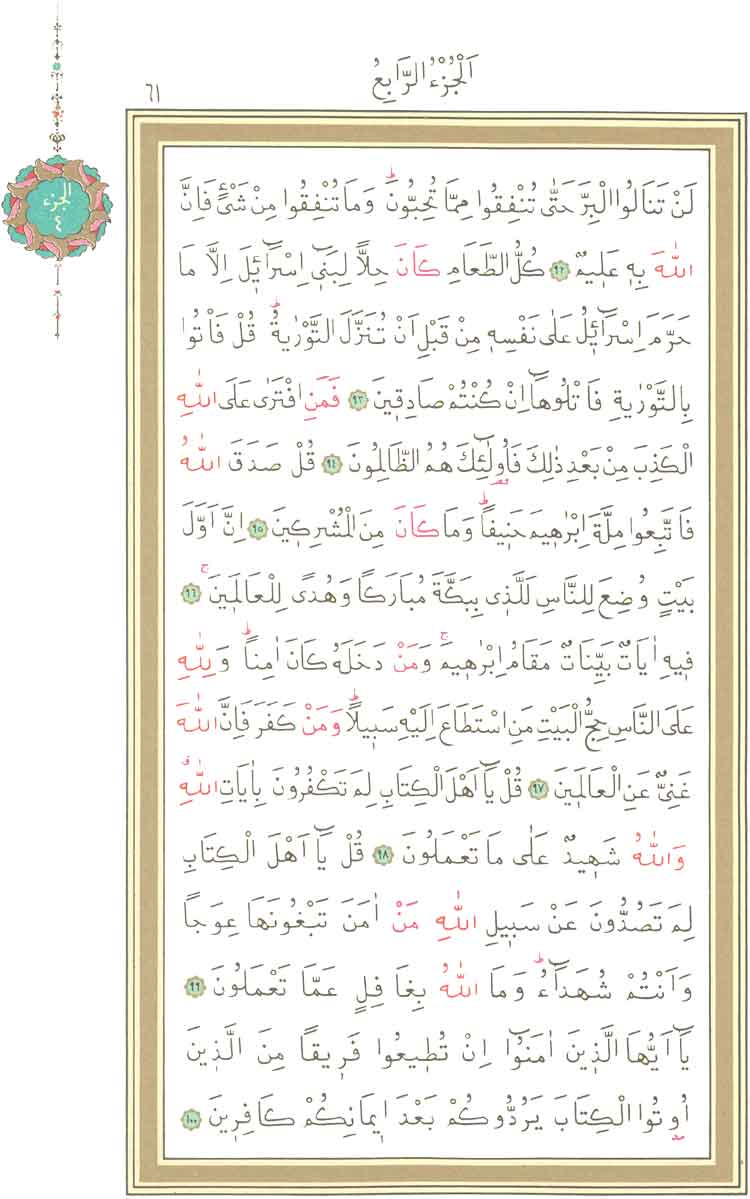 اَلْجُزْءُ الرَّابِعُ
٦١
الجزء
٤
لَنْ تَنَالُوا الْبِرَّ حَتّٰى تُنْفِقُوا مِمَّا تُحِبُّونَۜ وَمَا تُنْفِقُوا مِنْ شَيْءٍ فَاِنَّ
اللّٰهَ بِه۪ عَل۪يمٌ ﴿٩٢﴾ كُلُّ الطَّعَامِ كَانَ حِلًّا لِبَن۪ٓي اِسْرَٓائ۪لَ اِلَّا مَا
حَرَّمَ اِسْرَٓائ۪لُ عَلٰى نَفْسِه۪ مِنْ قَبْلِ اَنْ تُنَزَّلَ التَّوْرٰيةُۜ قُلْ فَأْتُوا
بِالتَّوْرٰيةِ فَاتْلُوهَٓا اِنْ كُنْتُمْ صَادِق۪ينَ ﴿٩٣﴾ فَمَنِ افْتَرٰى عَلَى اللّٰهِ
الْكَذِبَ مِنْ بَعْدِ ذٰلِكَ فَاُو۬لٰٓئِكَ هُمُ الظَّالِمُونَ ﴿٩٤﴾ قُلْ صَدَقَ اللّٰهُ
فَاتَّبِعُوا مِلَّةَ اِبْرٰه۪يمَ حَن۪يفًاۜ وَمَا كَانَ مِنَ الْمُشْرِك۪ينَ ﴿٩٥﴾ اِنَّ اَوَّلَ
بَيْتٍ وُضِعَ لِلنَّاسِ لَلَّذ۪ي بِبَكَّةَ مُبَارَكًا وَهُدًى لِلْعَالَم۪ينَۚ ﴿٩٦﴾
ف۪يهِ اٰيَاتٌ بَيِّنَاتٌ مَقَامُ اِبْرٰه۪يمَۚ وَمَنْ دَخَلَهُ كَانَ اٰمِنًاۜ وَلِلّٰهِ
عَلَى النَّاسِ حِجُّ الْبَيْتِ مَنِ اسْتَطَاعَ اِلَيْهِ سَب۪يلًاۜ وَمَنْ كَفَرَ فَاِنَّ اللّٰهَ
غَنِيٌّ عَنِ الْعَالَم۪ينَ ﴿٩٧﴾ قُلْ يَٓا اَهْلَ الْكِتَابِ لِمَ تَكْفُرُونَ بِاٰيَاتِ اللّٰهِۗ
وَاللّٰهُ شَه۪يدٌ عَلٰى مَا تَعْمَلُونَ ﴿٩٨﴾ قُلْ يَٓا اَهْلَ الْكِتَابِ
لِمَ تَصُدُّونَ عَنْ سَب۪يلِ اللّٰهِ مَنْ اٰمَنَ تَبْغُونَهَا عِوَجًا
وَاَنْتُمْ شُهَدَٓاءُۜ وَمَا اللّٰهُ بِغَافِلٍ عَمَّا تَعْمَلُونَ ﴿٩٩﴾
يَٓا اَيُّهَا الَّذ۪ينَ اٰمَنُٓوا اِنْ تُط۪يعُوا فَر۪يقًا مِنَ الَّذ۪ينَ
اُو۫تُوا الْكِتَابَ يَرُدُّوكُمْ بَعْدَ ا۪يمَانِكُمْ كَافِر۪ينَ ﴿١٠٠﴾